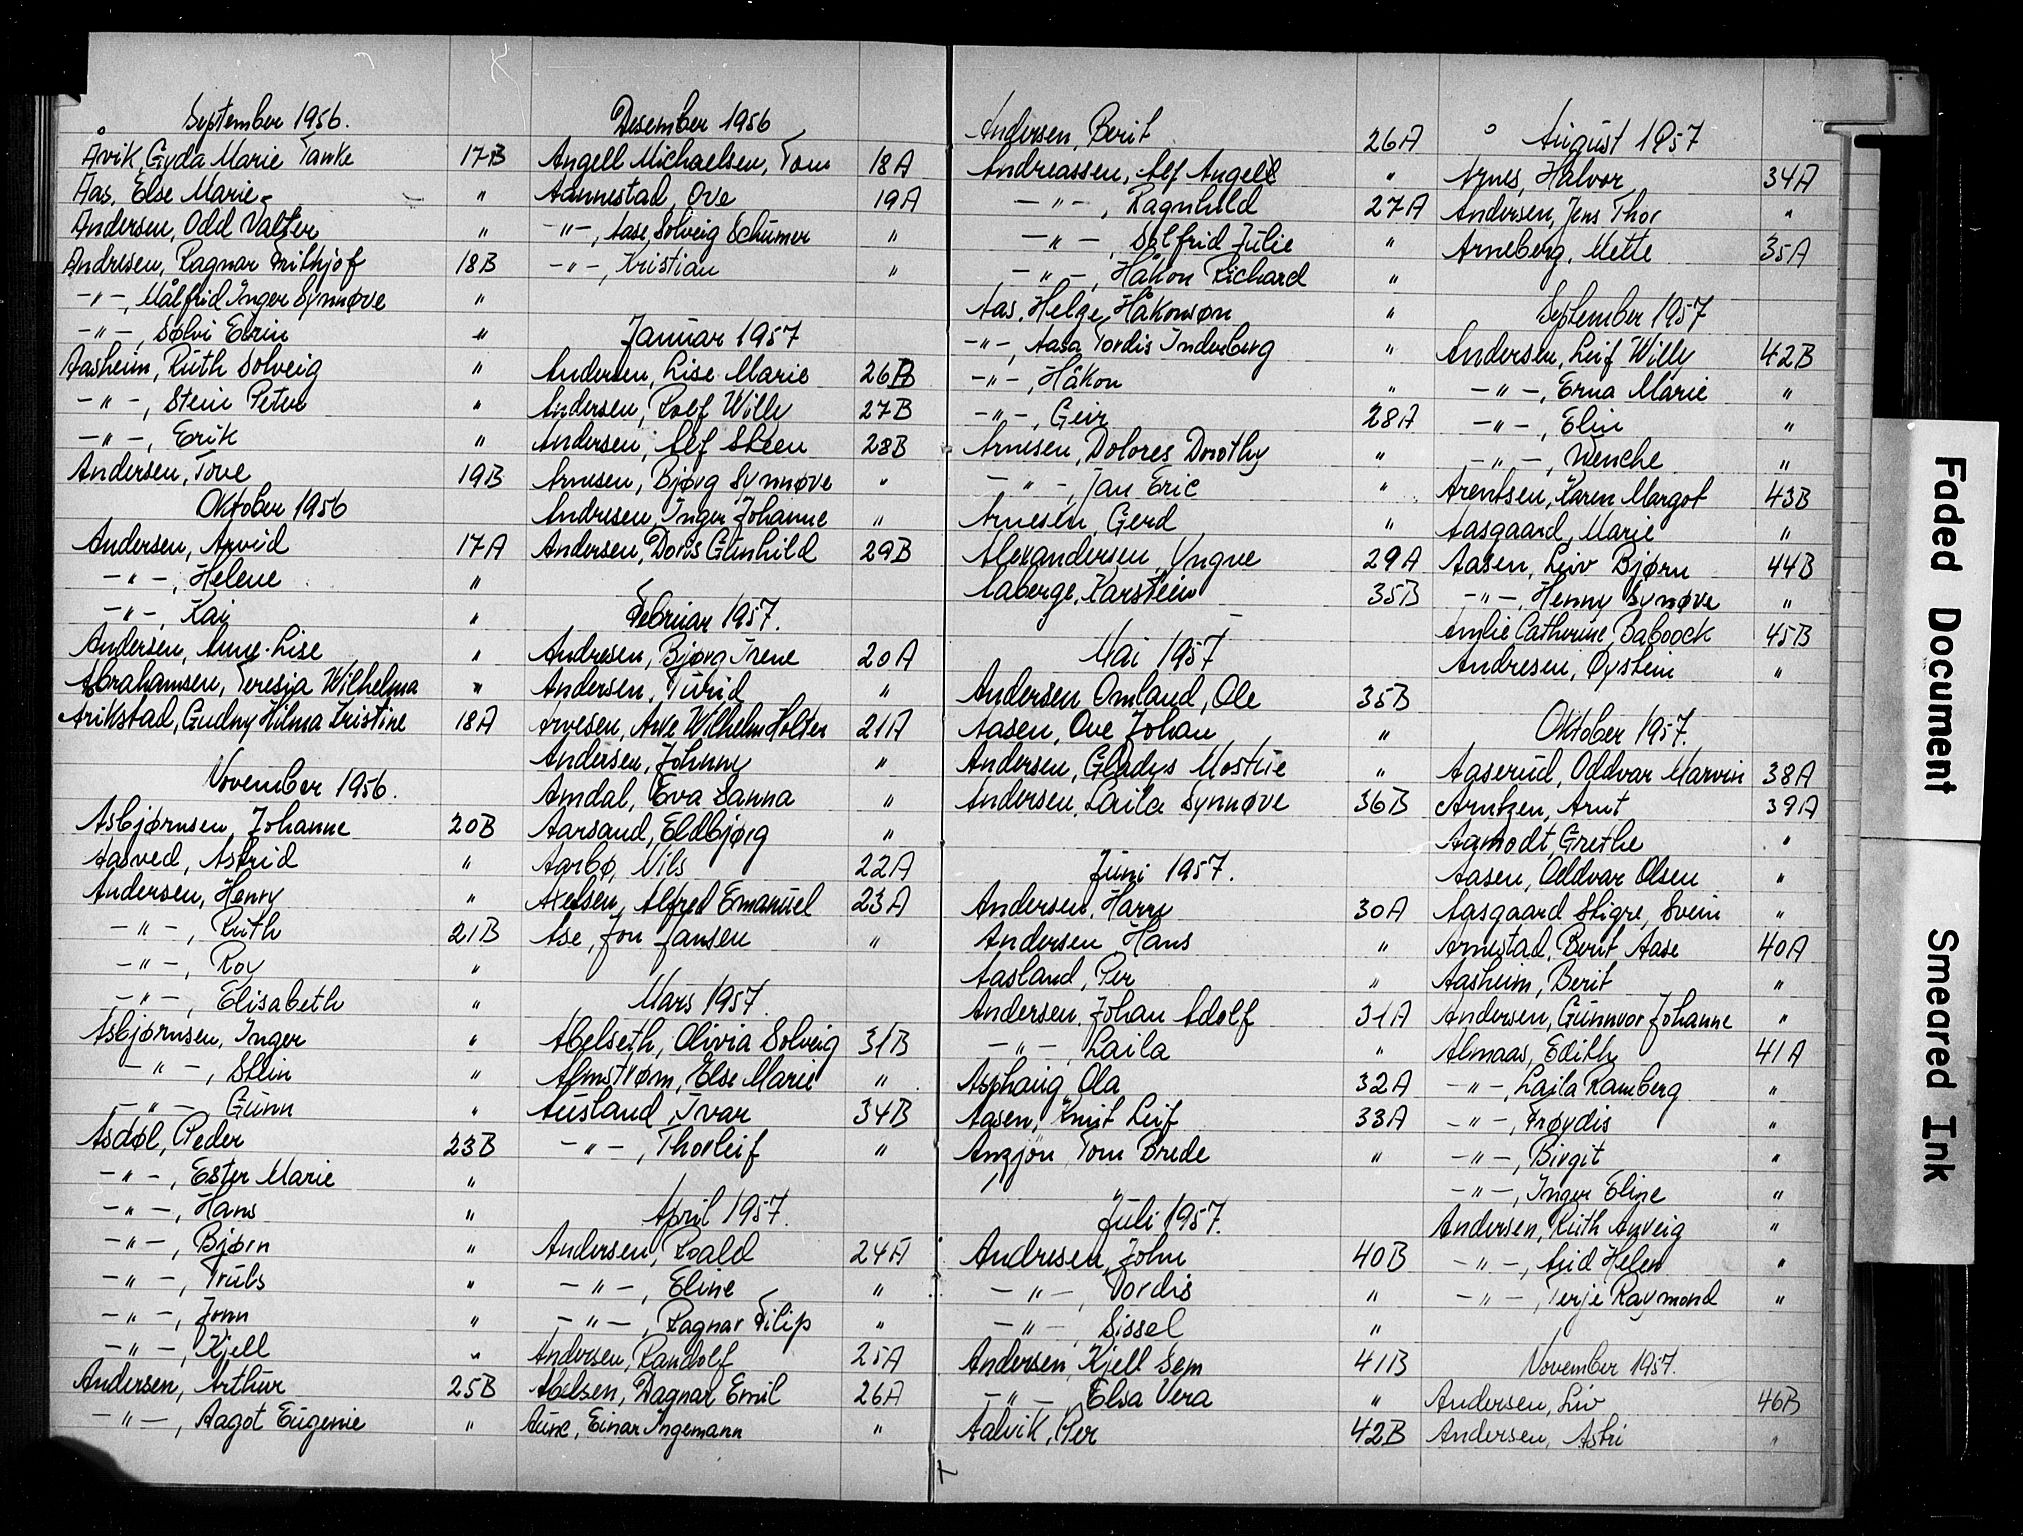 September 1956.
Åvik, Gyda Marie Tanke 17B
Aas, Else Marie "
Andersen, Odd Valter "
Andresen, Ragnar Frithjof 18B
-"-, Målfrid Inger Synnøve "
-"-, Sølvi Elvin "
Aasheim, Ruth Solveig "
-"-, Stein Peter "
-"-, Erik "
Andersen, Tove 19B
Oktober 1956
Andersen, Arvid 17A
-"-, Helene "
-"-, Kai "
Andersen, Anne-Lise "
Abrahamsen, Teresia Wilhelma "
Arikstad, Gudny Hilma Kristine 18A
November 1956.
Asbjørnsen, Johanne 20B
Aasved, Astrid "
Andersen, Henry "
-"-, Ruth 21B
-"-, Roy "
-"-, Elisabeth "
Asbjørnsen, Inger "
-"-, Stein "
-"-, Gunn "
Asdøl, Peder 23B
-"-, Ester Marie "
-"-, Hans "
-"-, Bjørn "
-"-, Truls "
-"-, Jonn "
-"-, Kjell "
Andersen, Arthur 25B
-"-, Aagot Eugenie "
Desember 1956
Angell Michaelsen, Tom 18A
Aannestad, Ove 19A
-"-, Aase, Solveig Schumer "
-"-, Kristian "
Januar 1957
Andersen, Lise Marie 26B
Andersen, Rolf Willy 27B
Andersen, Alf Steen 28B
Arnesen, Bjørg Synnøve "
Andresen, Inger Johanne "
Andersen, Doris Gunhild 29B
Februar 1957.
Andresen, Bjørg Irene 20A
Andersen, Turid "
Arvesen, Arve Wilhelm Holter 21A
Andersen, Johnny "
Amdal, Eva Sanna "
Aarsand, Eldbjørg "
Aarbø, Nils 22A
Axelsen, Alfred Emanuel 23A
Ase, Jon Jansen "
Mars 1957.
Abelseth, Olivia Solveig 31B
Almstrøm, Else Marie "
Ausland, Ivar 34B
-"-, Thorleif "
April 1957.
Andersen, Roald 24A
-"-, Eline "
-"-, Ragnar Filip "
Andersen, Randolf 25A
Abelsen, Dagnar Emil 26A
Aune, Einar Ingemann "
Andersen, Berit 26A
Andreassen, Alf Angell "
-"-, Ragnhild 27A
-"-, Solfrid Julie "
-"-, Håkon Richard "
Aas, Helge Håkonsøn "
-"-, Aasa Tordis Inderberg "
-"-, Håkon "
-"-, Geir 28A
Arnesen, Dolores Dorothy "
-"-, Jan Eric "
Arnesen, Gerd "
Alexandersen, Yngve 29A
Aaberge, Karstein 35B
Mai 1957
Andersen Omland, Ole 35B
Aasen, Ove Johan "
Andersen, Gladys Mostue "
Andersen, Laila Synnøve 36B
Juni 1957.
Andersen, Harry 30A
Andersen Hans "
Aasland, Per "
Andersen, Johan Adolf 31A
-"-, Laila "
Asphaug Ola 32A
Aasen, Knut Leif 33A
Anzjøn, Tom Brede "
Juli 1957.
Andresen, John 40B
-"-, Tordis "
-"-, Sissel "
Andersen, Kjell Sem 41B
-"- Elsa Vera "
Aalvik, Per 42B
August 1957
Årnes, Halvor 34A
Andersen, Jens Thor "
Arneberg, Mette 35A
September 1957
Andersen, Leif Willy 42B
-"-, Erna Marie "
-"-, Elin "
-"-, Wenche "
Arentsen, Karen Margot 43B
Aasgaard, Marie "
Aasen, Leiv Bjørn 44B
-"-, Henny Synøve "
Amlie Catherine Baboock 45B
Andresen, Øystein "
Oktober 1957.
Aaserud, Oddvar Marvin 38A
Arntzen, Arnt 39A
Aamodt, Grethe "
Aasen, Oddvar Olsen "
Aasgaard Stigre, Svein "
Arnestad, Berit Aase 40A
Aasheim, Berit "
Andersen, Gunnvor Johanne "
Almaas, Edith 41A
-"-, Laila Ramberg "
-"-, Frøydis "
-"-, Birgit "
-"-, Inger Eline "
Andersen, Ruth Anveig "
-"-, Arid Helen "
-"-, Terje Raymond "
November 1957.
Andersen, Liv 46B
Andersen, Astri "
Faded Document
Smeared Ink